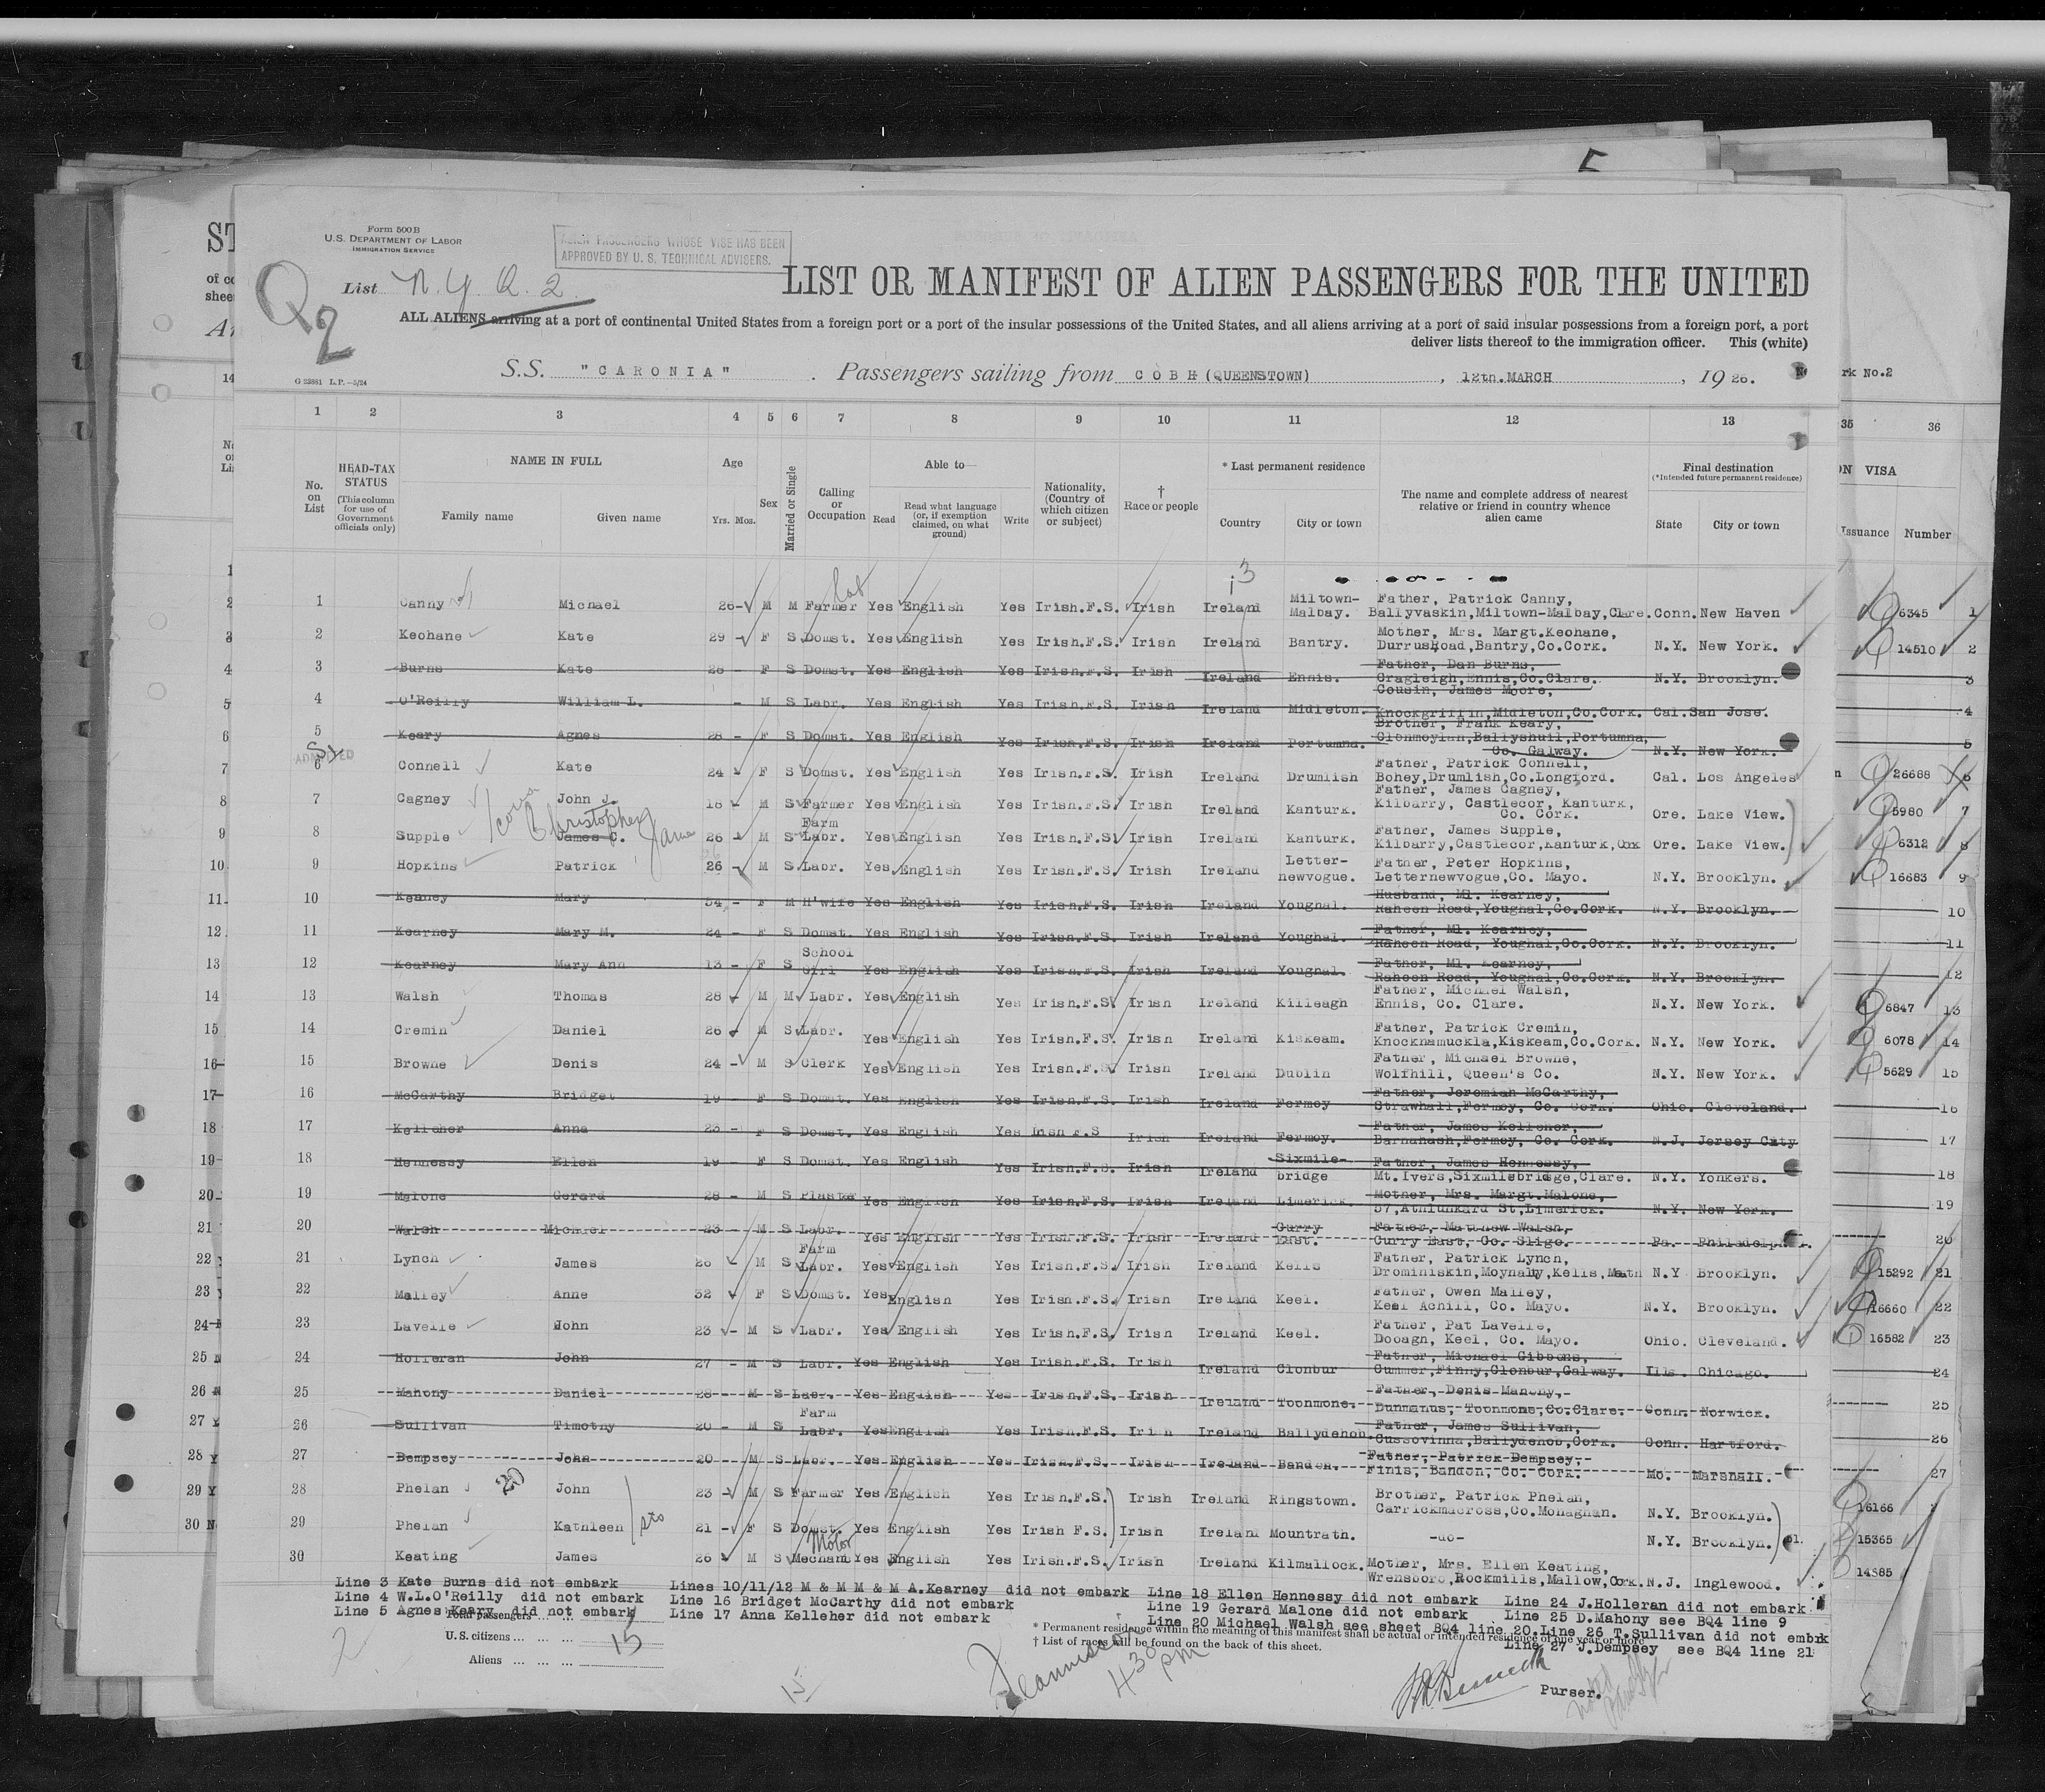 Form 500 B
U.S. DEPARTMENT OF LABOR
IMMIGRATION SERVICE
ALIEN PASSENGERS WHOSE VISE HAS BEEN
APPROVED BY U. S. TECHNICAL ADVISERS.
Q2
List N. Y. Q. 2
LIST OR MANIFEST OF ALIEN PASSENGERS FOR THE UNITED
ALL ALIENS arriving at a port of continental United States from a foreign port or a port of the insular possessions of the United States, and all aliens arriving at a port of said insular possessions from a foreign port, a port
deliver lists thereof to the immigration officer. This (white)
G 22861 L.P.—5/24
S.S. "CARONIA". Passengers sailing from COBH (QUEENSTOWN), 12th. MARCH, 1926.
rk No.2
1 2 3 4 5 6 7 8 9 10 11 12 13 35 36
No. on List
HEAD-TAX STATUS (This column for use of Government officials only)
NAME IN FULL
Family name
Given name
Age
Yrs. Mos.
Sex
Married or Single
Calling or Occupation
Able to—
Read
Read what language (or, if exemption claimed, on what ground)
Write
Nationality, (Country of which citizen or subject)
† Race or people
* Last permanent residence
Country
City or town
The name and complete address of nearest relative or friend in country whence alien came
Final destination
(*Intended future permanent residence)
State
City or town
VISA
Issuance
Number
1 Canny Michael 26 M M Farmer Yes English Yes Irish.F.S. Irish Ireland Miltown-Malbay. Father, Patrick Canny, Ballyvaskin,Miltown-Malbay,Clare. Conn. New Haven 6345 1
2 Keohane Kate 29 F S Domst. Yes English Yes Irish.F.S. Irish Ireland Bantry. Mother, Mrs. Margt.Keohane, DurrusRoad,Bantry,Co.Cork. N.Y. New York. 14510 2
3 Burns Kate 26 F S Domst. Yes English Yes Irish.F.S. Irish Ireland Ennis. Father, Dan Burns, Cragleigh,Ennis,Co.Clare. N.Y. Brooklyn. 3
4 O'Reilly William L. - M S Labr. Yes English Yes Irish.F.S. Irish Ireland Midleton. Cousin, James Moore, Knockgriffin,Midleton,Co.Cork. Cal. San Jose. 4
5 Keary Agnes 28 - F S Domst. Yes English Yes Irish.F.S. Irish Ireland Portumna. Brother, Frank Keary, Clonmoylan,Ballyshuil,Portumna, Co. Galway. N.Y. New York. 5
ADMITTED
6 Connell Kate 24 F S Domst. Yes English Yes Irish.F.S. Irish Ireland Drumlish Father, Patrick Connell, Bohey,Drumlish,Co.Longford. Cal. Los Angeles 26688 6
7 Cagney John J. 18 M S Farmer Yes English Yes Irish.F.S. Irish Ireland Kanturk. Father, James Cagney, Kilbarry, Castlecor, Kanturk, Co. Cork. Ore. Lake View. 5980 7
Christopher James
8 Supple James C. 26 M S Farm Labr. Yes English Yes Irish.F.S. Irish Ireland Kanturk. Father, James Supple, Kilbarry,Castlecor,Kanturk,Cox Ore. Lake View. 6312 8
9 Hopkins Patrick 26 M S Labr. Yes English Yes Irish.F.S. Irish Ireland Letter-newvogue. Father, Peter Hopkins, Letternewvogue,Co. Mayo. N.Y. Brooklyn. 16683 9
10 Kearney Mary 54 - F M H'wife Yes English Yes Irish.F.S. Irish Ireland Youghal. Husband, Ml. Kearney, Raheen Road,Youghal,Co.Cork. N.Y. Brooklyn. 10
11 Kearney Mary M. 24 - F S Domst. Yes English Yes Irish.F.S. Irish Ireland Youghal. Father, Ml. Kearney, Raheen Road, Youghal,Co.Cork. N.Y. Brooklyn. 11
12 Kearney Mary Ann 13 - F S School Girl Yes English Yes Irish.F.S. Irish Ireland Youghal. Father, Ml. Kearney, Raheen Road, Youghal,Co.Cork. N.Y. Brooklyn. 12
13 Walsh Thomas 28 M M Labr. Yes English Yes Irish.F.S. Irish Ireland Killeagh Father, Michael Walsh, Ennis, Co. Clare. N.Y. New York. 6847 13
14 Cremin Daniel 26 M S Labr. Yes English Yes Irish.F.S. Irish Ireland Kiskeam. Father, Patrick Cremin, Knocknamuckla,Kiskeam,Co.Cork. N.Y. New York. 6078 14
15 Browne Denis 24 M S Clerk Yes English Yes Irish.F.S. Irish Ireland Dublin Father, Michael Browne, Wolfhill, Queen's Co. N.Y. New York. 5629 15
16 McCarthy Bridget 19 - F S Domst. Yes English Yes Irish.F.S. Irish Ireland Fermoy Father, Jeremiah McCarthy, Strawhall,Fermoy, Co. Cork. Ohio. Cleveland. 16
17 Kelleher Anna 23 - F S Domst. Yes English Yes Irish F.S Irish Ireland Fermoy. Father, James Kelleher, Barnahash,Fermoy, Co. Cork. N.J. Jersey City 17
18 Hennessy Ellen 19 - F S Domst. Yes English Yes Irish.F.S. Irish Ireland Sixmile-bridge Father, James Hennessy, Mt.Ivers,Sixmilebridge,Clare. N.Y. Yonkers. 18
19 Malone Gerard 28 - M S Plaster Yes English Yes Irish.F.S. Irish Ireland Limerick. Mother, Mrs. Margt.Malone, 37,Athlunkard St,Limerick. N.Y. New York. 19
20 Walsh Michael 23 - M S Labr. Yes English Yes Irish.F.S. Irish Ireland Curry East. Father, Matthew Walsh, Curry East, Co. Sligo. Pa. Philadelph. 20
21 Lynch James 26 M S Farm Labr. Yes English Yes Irish.F.S. Irish Ireland Kells Father, Patrick Lynch, Drominiskin,Moynalty,Kells,Meath N.Y Brooklyn. 15292 21
22 Malley Anne 32 F S Domst. Yes English Yes Irish.F.S. Irish Ireland Keel. Father, Owen Malley, Keel Achill, Co. Mayo. N.Y. Brooklyn. 16660 22
23 Lavelle John 23 - M S Labr. Yes English Yes Irish.F.S. Irish Ireland Keel. Father, Pat Lavelle, Dooagn, Keel, Co. Mayo. Ohio. Cleveland. 16582 23
24 Holleran John 27 - M S Labr. Yes English Yes Irish.F.S. Irish Ireland Clonbur Father, Michael Gibbons, Cummer,Finny,Clonbur,Galway. Ills. Chicago. 24
25 Mahony Daniel 28 - M S Labr. Yes English Yes Irish.F.S. Irish Ireland Toonmone. Father, Denis Mahony, Dunmanus, Toonmone,Co.Clare. Conn. Norwick. 25
26 Sullivan Timothy 20 - M S Farm Labr. Yes English Yes Irish.F.S. Irish Ireland Ballydehob Father, James Sullivan, Cussovinna,Ballydehob,Cork. Conn. Hartford. 26
27 Dempsey John 20 - M S Labr. Yes English Yes Irish.F.S. Irish Ireland Bandon. Father, Patrick Dempsey, Finis, Bandon, Co. Cork. Mo. Marshall. 27
28 Phelan 20 John 23 M S Farmer Yes English Yes Irish.F.S. Irish Ireland Ringstown. Brother, Patrick Phelan, Carrickmacross,Co.Monaghan. N.Y. Brooklyn. 16166
29 Phelan Kathleen 21 - F S Domst. Yes English Yes Irish F.S. Irish Ireland Mountrath. -do- N.Y. Brooklyn. 15365
30 Keating James 26 M S Motor Mechanc Yes English Yes Irish.F.S. Irish Ireland Kilmallock. Mother, Mrs. Ellen Keating, Wrensboro,Rockmills,Mallow,Cork. N.J. Inglewood. 14585
Line 3 Kate Burns did not embark
Line 4 W.L.O'Reilly did not embark
Line 5 Agnes Keary did not embark
Lines 10/11/12 M & M M & M A.Kearney did not embark
Line 16 Bridget McCarthy did not embark
Line 17 Anna Kelleher did not embark
Line 18 Ellen Hennessy did not embark
Line 19 Gerard Malone did not embark
Line 20 Michael Walsh see sheet BQ4 line 20.
Line 24 J.Holleran did not embark
Line 25 D.Mahony see BQ4 line 9
Line 26 T.Sullivan did not embrk
Line 27 J.Dempsey see BQ4 line 21
Total passengers ... ...
U.S. citizens ... ... ... 15
Aliens ... ... ...
* Permanent residence within the meaning of this manifest shall be actual or intended residence of one year or more
† List of races will be found on the back of this sheet.
2
15
430 pm
Purser.